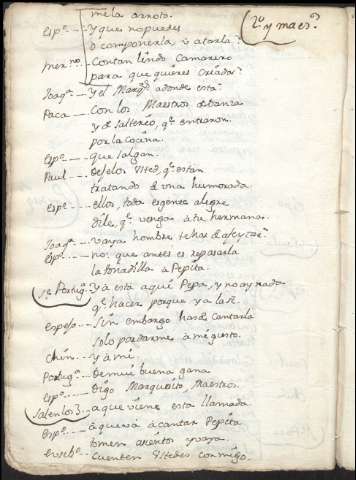 me la arrofo.
2º. y maes.º
Esp.ª ---- Y que no puedes
ò componerla, ù atarla?
mer.no ---- Con tan lindo Camarero
para que quieres Criadas?
Joaq.ª ---- Y el Marq.s adonde está?
Paca ---- Con los Maestros de Danza
y de Salterio, q.e entraron
por la Cocina.
Esp.ª ---- Que salgan.
Paul. ---- Dejelos Vsted, q.e estan
tratando de una humorada
Esp.e ---- ellos, toda es gente alegre
dile, q.e vengan à tu hermana.
Joaq.ª ---- vaya hombre
Esp.e ---- no: que antes es repasarla
la tonadilla à Pepita.
Se. Portug.s Yà està aqui Pepa, y no ay nada
q.e hacer porque ya la sè.
esposo ---- Sin embargo has de Cantarla
solo por darme à mi gusto.
Chin. ---- Y à mi.
Portug.s ---- De mui buena gana
Esp.e ---- Digo Marquesito, Maestros.
Salen los 3. a que viene esta llamada
Esp.e ---- à que va à cantar Pepita
tomen asientos y vaya.
Euseb.o ---- Cuenten Vstedes conmigo.